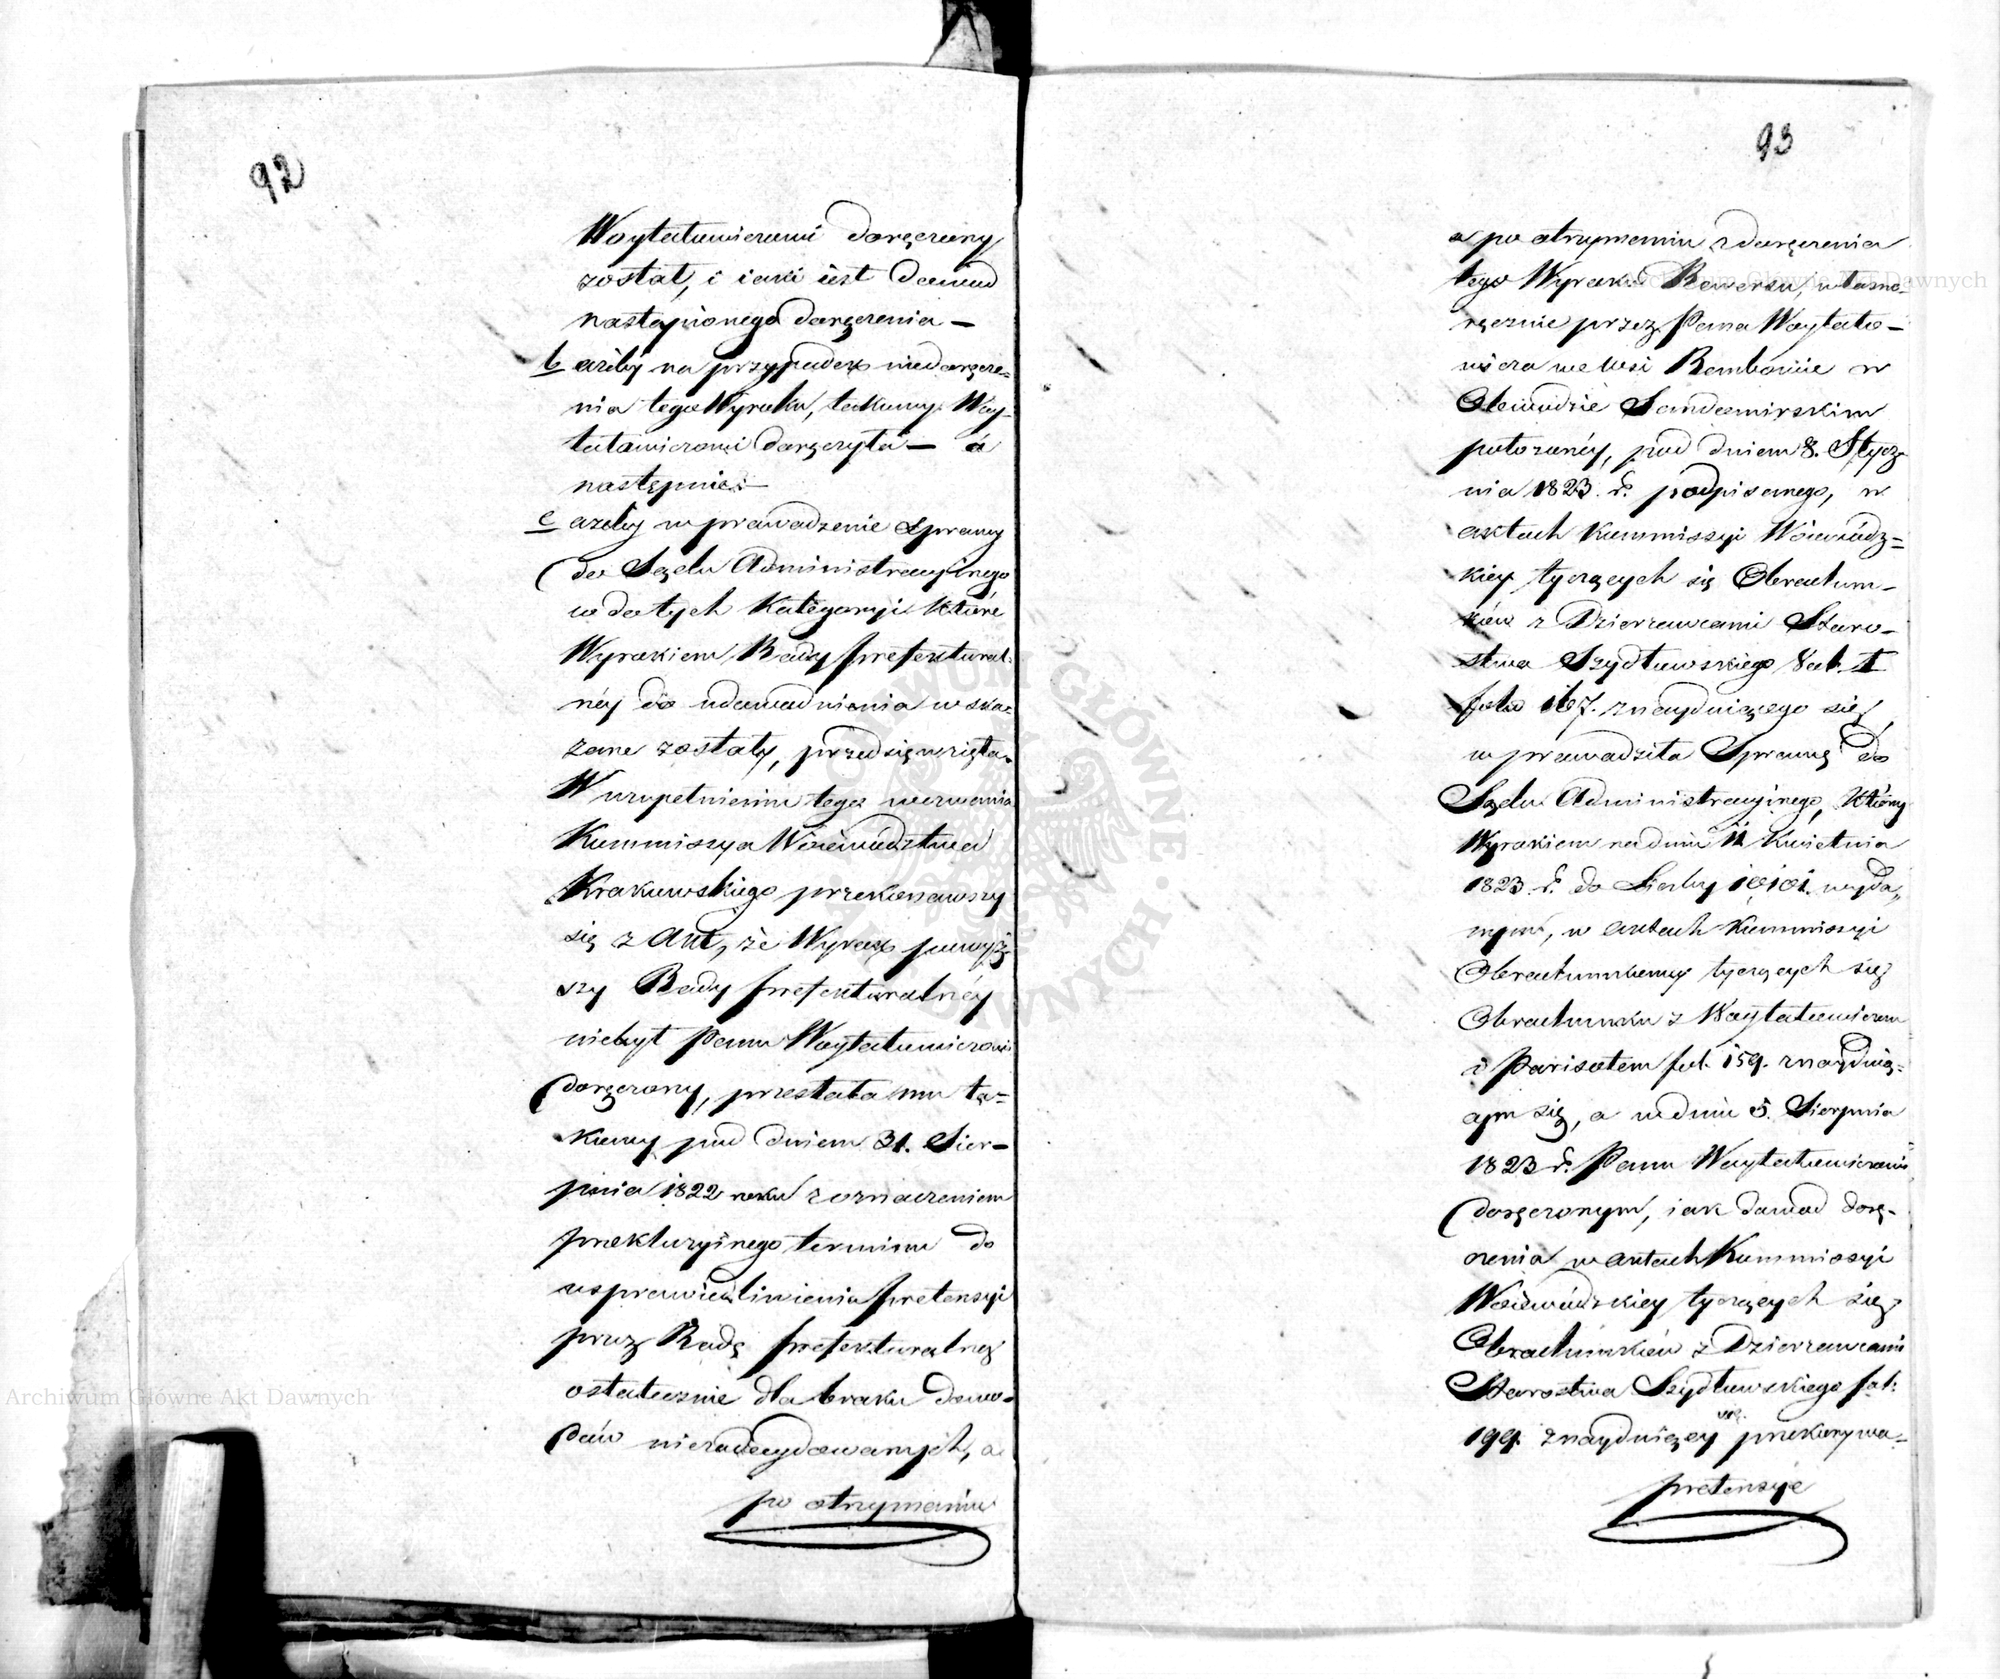 92
Woytatowiczowi doręczony
został, i iaki iest dowód
nastąpionego doręczenia —
b ażeby na przypadek niedoręcze=
nia tego Wyroku, takowy Woy=
tatowiczowi doręczyła — a
następnie —
c ażeby wprowadzenie sprawy
do Sądu Administracyinego
wdotych Kategoryi które
Wyrokiem Rady Prefektural=
néy do udowodnienia wska=
zane zostały, przedsięwzięła.
W uzupełnieniu tego wezwania
Kommissya Woiewództwa
Krakowskiego przekonawszy
się z Akt, że Wyrok powyż=
szy Rady Prefekturalnéy
niebył Panu Woytatowiczowi
doręczony, przesłała mu ta=
kowy pod dniem 31. Sier=
pnia 1822 roku z oznaczeniem
prekluzyinego terminu do
usprawiedliwienia pretensyi
przez Radę Prefekturalną
ostatecznie dla braku dowo=
dów niezadecydowanych, a
po otrzymaniu
93
a po otrzymaniu z doręczenia
tego Wyroku Rewersu, własno=
ręcznie przez Pana Woytato=
wicza we wsi Rembowie w
Obwodzie Sandomirskim
położonéy, pod dniem 8. Stycz
nia 1823. r. podpisanego, w
aktach Kommissyi Woiewódz=
kiey tyczących się Obrachun=
ków z Dzierzawcami Staro=
stwa Szydłowskiego Vol. I
folio 167. znayduiącego się,
wprowadziła Sprawę do
Sądu Administracyinego, który
Wyrokiem na dniu 11 Kwietnia
1823. r. do Liczby 10101. wyda=
nym, w aktach Kommissyi
Obrachunkowey tyczących się
Obrachunku z Woytatowiczem
i Parisotem fol. 159. znayduią=
cym się, a w dniu 5. Sierpnia
1823 r. Panu Woytatowiczowi
doręczonym, iak dowód dorę=
czenia w aktach Kommissyi
Woiewódzkiey tyczących się
Obrachunków z Dzierzawcami
Starostwa Szydłowskiego fol:
199. znayduiący prekazywa=
pretensye
Archiwum Główne Akt Dawnych
Archiwum Główne Akt Dawnych
ARCHIWUM GŁÓWNE AKT DAWNYCH